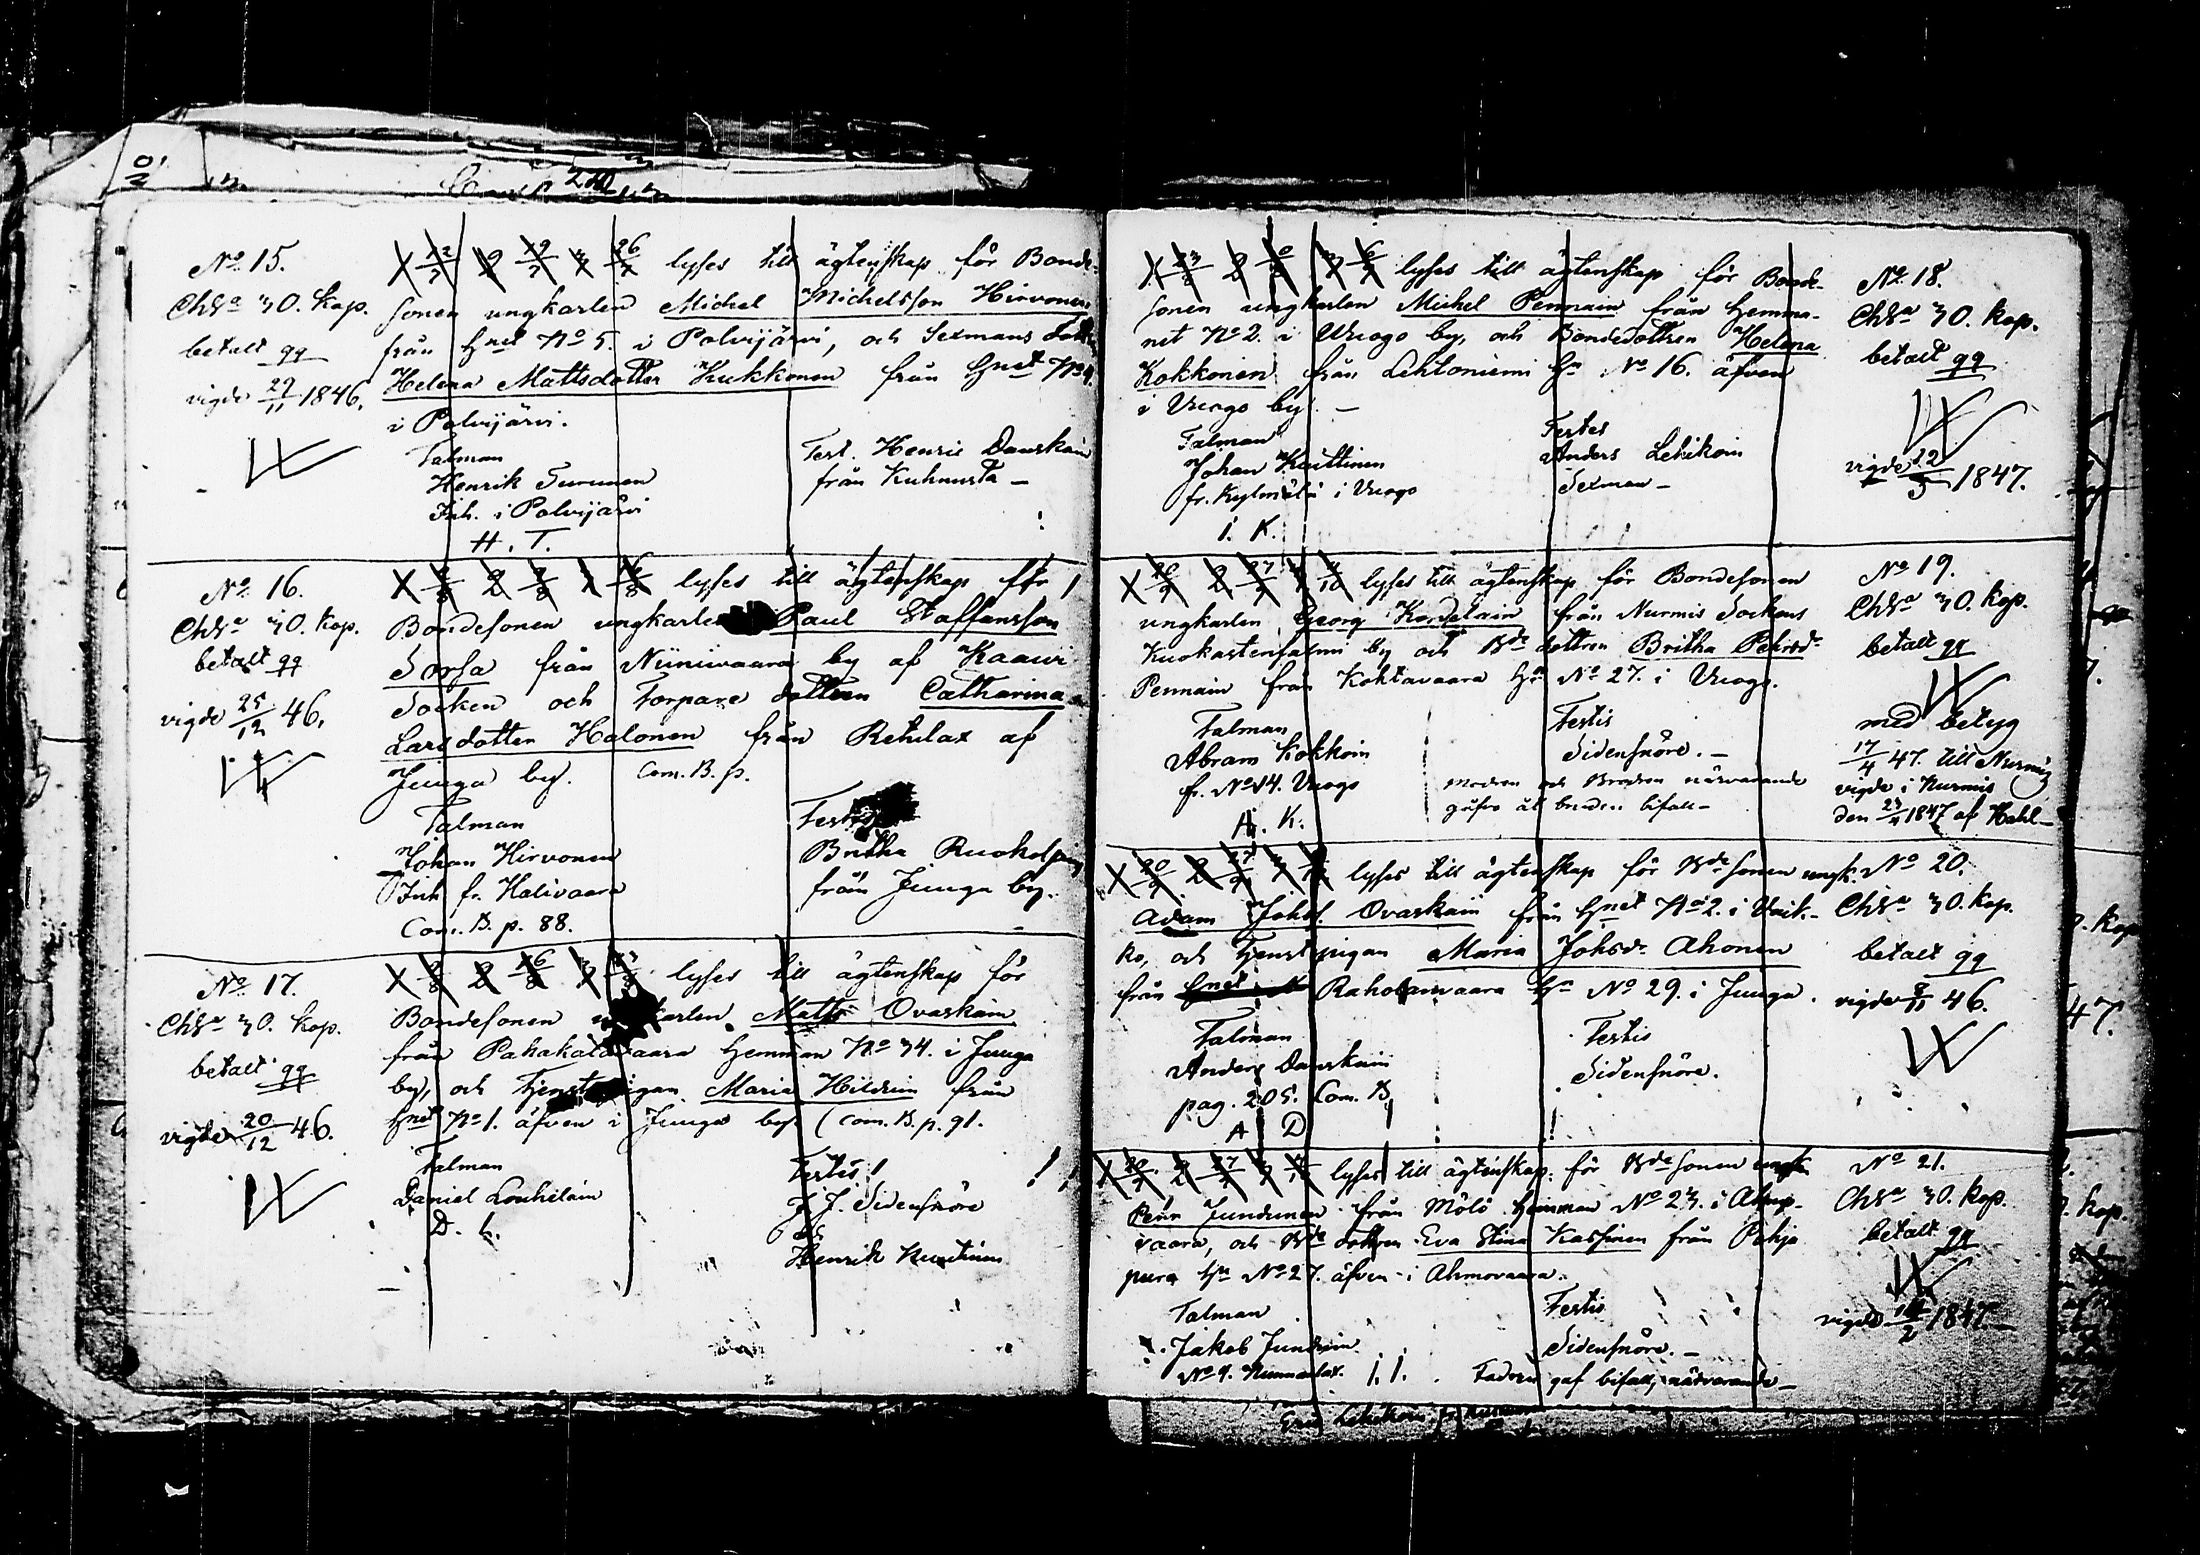 No 15.
Chs:a 30. kop.
betalt gg
vigde 29/11 1846.
X 12/7 2 19/7 3 26/7 lyses till ägtenskap för Bonde-
sonen ungkarlen Michel Michelsson Hirvonen
från Hnet No 5. i Polvijärvi, och Sexmans dottren
Helena Mattsdotter Kukkonen från Hnet No 4.
i Polvijärvi.
Talman
Henrik Turunen
Inh. i Polvijärvi
H. T.
Test. Henric Danskain
från Kuhnusta –
No 16.
Chs:a 30. kop.
betalt gg
vigde 25/12 46.
lyses till ägtenskap för
Bondesonen ungkarlen Paul Staffansson
Sorsa från Niinivaara by af Kaawi
Socken och Torpare dottren Catharina
Larsdotter Halonen från Retulax af
Juuga by. Com. B. p.
Talman
Johan Hirvonen
Inh fr. Halivaara
Com. B. p. 88.
Testis
Britha Ruoholain
från Juuga by.
No 17.
Chs:a 30. kop.
betalt gg
vigde 20/12 46.
lyses till ägtenskap för
Bondesonen ungkarlen Matts Ovaskain
från Pahakalavaara Hemman No 34. i Juuga
by, och Tjenstepigan Maria Hildin från
Hnet No 1. äfven i Juuga by. (Com. B. p. 91.
Talman
Daniel Louhelain
D. L.
Testis!
J. J. Sidensnöre
Henrik Nuutinen
X 23/8 2 30/8 3 6/9 lyses till ägtenskap för Bonde-
sonen ungkarlen Michel Pennain från Hemma-
net No 2. i Wuogo by, och Bondedottren Helena
Kokkonen från Lehtoniemi Hn No 16. äfven
i Wuogo by. –
Talman
Johan Kuittinen
fr. Kylmälä i Wuogo
I. K.
Testes
Anders Lehikoin
Sexman –
No 18.
Chs:a 30. kop.
betalt gg
vigde 12/5 1847.
X 20/9 2 27/9 3 4/10 lyses till ägtenskap för Bondesonen
ungkarlen Georg Kordelain från Nurmis Sockens
Kuokastensalmi by och Bde dottren Britha Pehrsdr
Pennain från Kohtavaara Hn No 27. i Wuogo.
Talman
Abram Kokkoin
fr. No 14. Wuogo
A. K.
Testis
Sidensnöre. –
Modren och Brodren närvarande
gåfvo åt bruden bifall –
No 19.
Chs:a 30. kop.
betalt gg
med betyg
17/4 47. till Nurmis
vigde i Nurmis
den 23/4 1847 af Hahl –
X 20/9 2 27/9 3 lyses till ägtenskap för Bde sonen ungk.
Adam Johss. Ovaskain från Hnet No 2. i Vaik-
ko, och Tjenstpigan Maria Johsdr Ahonen
från Raholanvaara Hn No 29. i Juuga.
Talman
Anders Danskain
pag. 205. Com. B.
A D
Testis
Sidensnöre.
No 20.
Chs:a 30. kop.
betalt gg
vigde 8/11 46.
lyses till ägtenskap för Bde sonen ungk.
Pehr Jundunen från Mölö Hemman No 23. i Ahmo-
vaara, och Bde dottren Eva Stina Kassinen från Pohja
pura Hn No 27. äfven i Ahmovaara.
Talman
Jakob Jundain
No 4. Nunnanlax. I. I.
Testis
Sidensnöre. –
Fadren gaf bifall, närvarande –
No 21.
Chs:a 30. kop.
betalt gg
vigde 14/2 1847. –